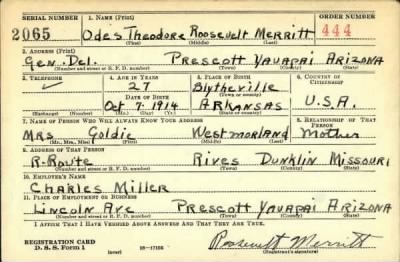 SERIAL NUMBER 1. NAME (Print) ORDER NUMBER
2065 Odes Theodore Roosevelt Merritt 444
(First) (Middle) (Last)
2. ADDRESS (Print)
Gen. Del. Prescott Yavapai Arizona
(Number and street or R. F. D. number) (Town) (County) (State)
3. TELEPHONE 4. AGE IN YEARS 5. PLACE OF BIRTH 6. COUNTRY OF CITIZENSHIP
27 Blytheville
(Town or county)
DATE OF BIRTH
Oct 7. 1914 Arkansas U.S.A.
(Exchange) (Number) (Mo.) (Day) (Yr.) (State or country)
7. NAME OF PERSON WHO WILL ALWAYS KNOW YOUR ADDRESS 8. RELATIONSHIP OF THAT PERSON
Mrs Goldie Westmorland Mother
(Mr., Mrs., Miss) (First) (Middle) (Last)
9. ADDRESS OF THAT PERSON
R-Route Rives Dunklin Missouri
(Number and street or R. F. D. number) (Town) (County) (State)
10. EMPLOYER'S NAME
Charles Miller
11. PLACE OF EMPLOYMENT OR BUSINESS
Lincoln Ave Prescott Yavapai Arizona
(Number and street or R. F. D. number) (Town) (County) (State)
I AFFIRM THAT I HAVE VERIFIED ABOVE ANSWERS AND THAT THEY ARE TRUE.
REGISTRATION CARD
D. S. S. Form 1 (over) 16—17105 Roosevelt Merritt
(Registrant's signature)